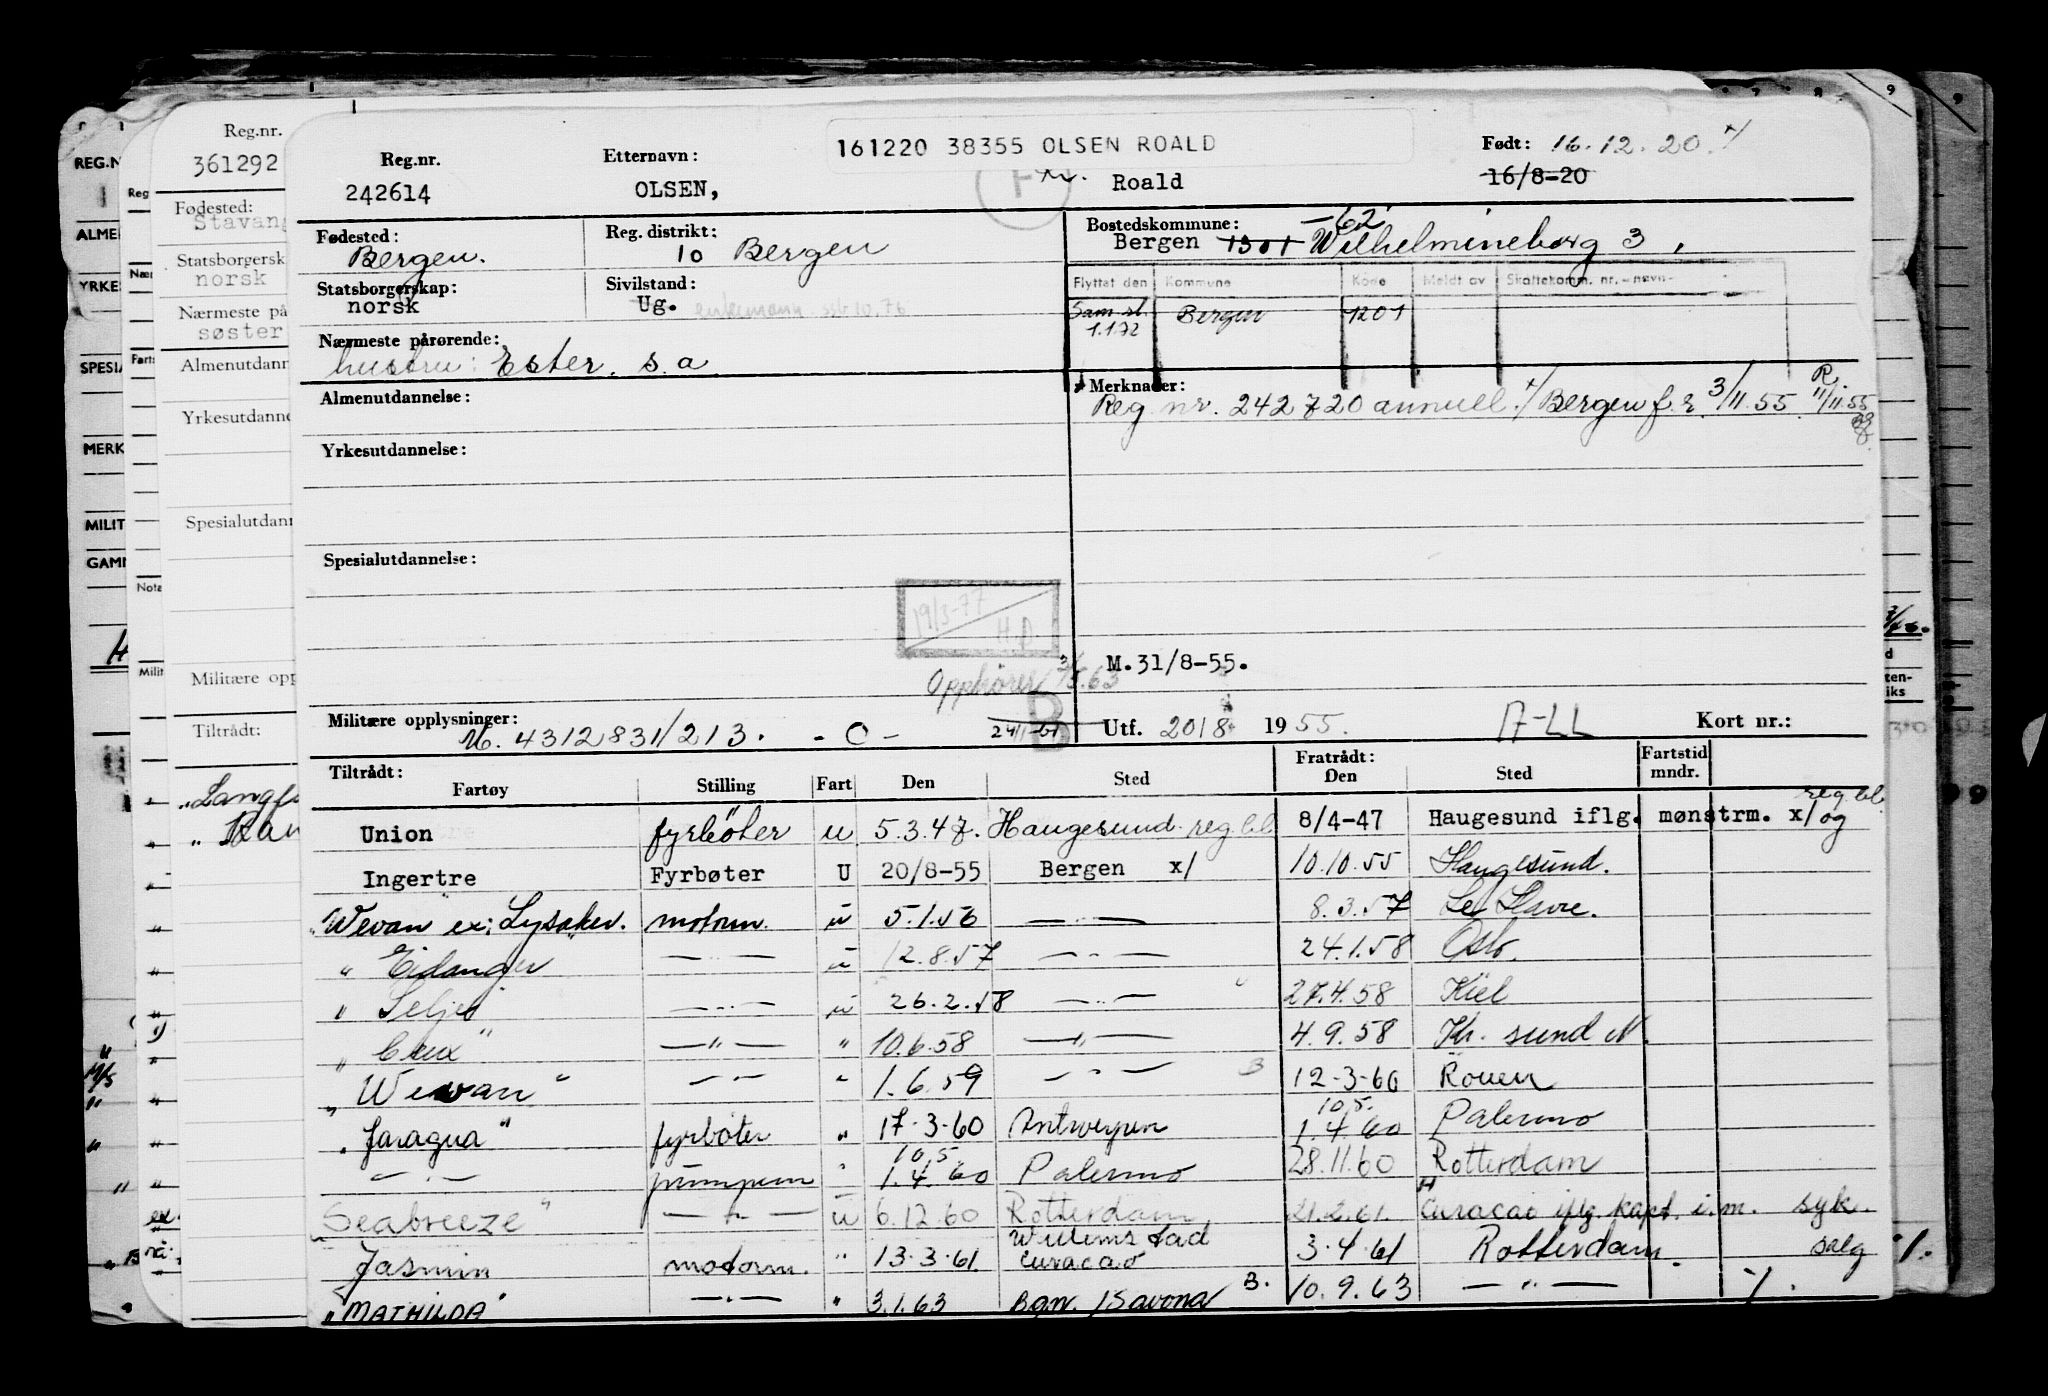 161220 38355 OLSEN ROALD
Reg.nr. 242614
Etternavn: OLSEN, Roald
Født: 16.12.20
16/8-20
Fødested: Bergen.
Reg. distrikt: 10 Bergen
Bostedskommune: -62
Bergen 1301 Wilhelmineborg 3
Statsborgerskap: norsk
Sivilstand: Ug. enkemann ssb 10.76
Flyttet den Kommune Kode Meldt av Skattekomm. nr. - navn
Sam.sl. 1.1.72 Bergen 1201
Nærmeste pårørende: hustru: Ester. s.a.
Almenutdannelse:
Merknader: R.
Reg. nr. 242720 annull. Bergen f.r. 3/11.55. 11/11.55
Yrkesutdannelse:
Spesialutdannelse:
19/3-77
H.D.
M.31/8-55.
Opphører
B
Militære opplysninger: M. 4312831/213. -0-
24/1-61
Utf. 20/8 1955. A-LL Kort nr.:
Tiltrådt: Fratrådt:
Fartøy Stilling Fart Den Sted Den Sted Fartstid mndr.
Union fyrbøter u 5.3.47. Haugesund reg.bl. 8/4-47 Haugesund iflg. mønstrm. x/ og reg.bl.
Ingertre Fyrbøter U 20/8-55 Bergen x/ 10.10.55 Haugesund.
"Wevan ex: Lysaker. motorm. u 5.1.56 —"— 8.3.57 Le Havre.
" Eidanger —"— u 12.8.57 —"— 24.1.58 Oslo.
" Seljes —"— u 26.2.58 —"— 27.4.58 Kiel
" Crux" —"— " 10.6.58 —"— 4.9.58 Kr. sund N.
"Wewan" —"— " 1.6.59 —"— B 12-3-60 Rouen
"Jaragua" fyrbøter " 17-3-60 Antwerpen 10.5. 1.4.60 Palermo
—"— pumpem " 10.5. 1.4.60 Palermo 28.11.60 Rotterdam
"Seabreeze" —"— u 6.12.60 Rotterdam 21.2.61. Curacao iflg. kapt. i.m. syk.
Jasmin motorm. " 13-3-61. Willemstad Curacao 3.4.61 Rotterdam. salg
"MATHILDA" —"— " 3.1.63 Bgn. /Savona B. 10.9.63 —"— ./.
Reg.nr. 361292
Fødested: Stavang
Statsborgersk norsk
Nærmeste på søster
Almenutdann
Yrkesutdanne
Spesialutdann
Militære opp
Tiltrådt:
REG.N
Reg
ALME
YRKE
Nær
Farts
SPESIA
MERK
MILIT
GAMM
Nota
Milit